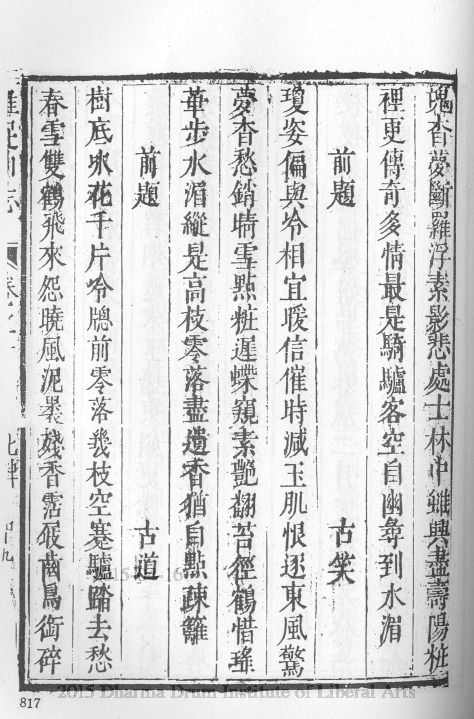 魂杳夢斷羅浮素影悲處士林中雖興盡壽陽粧
裡更傳奇多情最是騎驢客空自幽尋到水湄
前題 古笑
瓊姿偏與冷相宜暖信催時減玉肌恨逐東風驚
夢杳愁銷晴雪點粧遲蝶窺素艷翻苔徑鶴惜瑤
華步水湄縱是高枝零落盡遺香猶自點疎籬
前題 古道
樹底氷花千片冷牕前零落幾枝空蹇驢踏去愁
春雪雙鶴飛來怨曉風泥裏殘香霑屐齒鳥銜碎
817
2015 Dharma Drum Institute of Liberal Arts